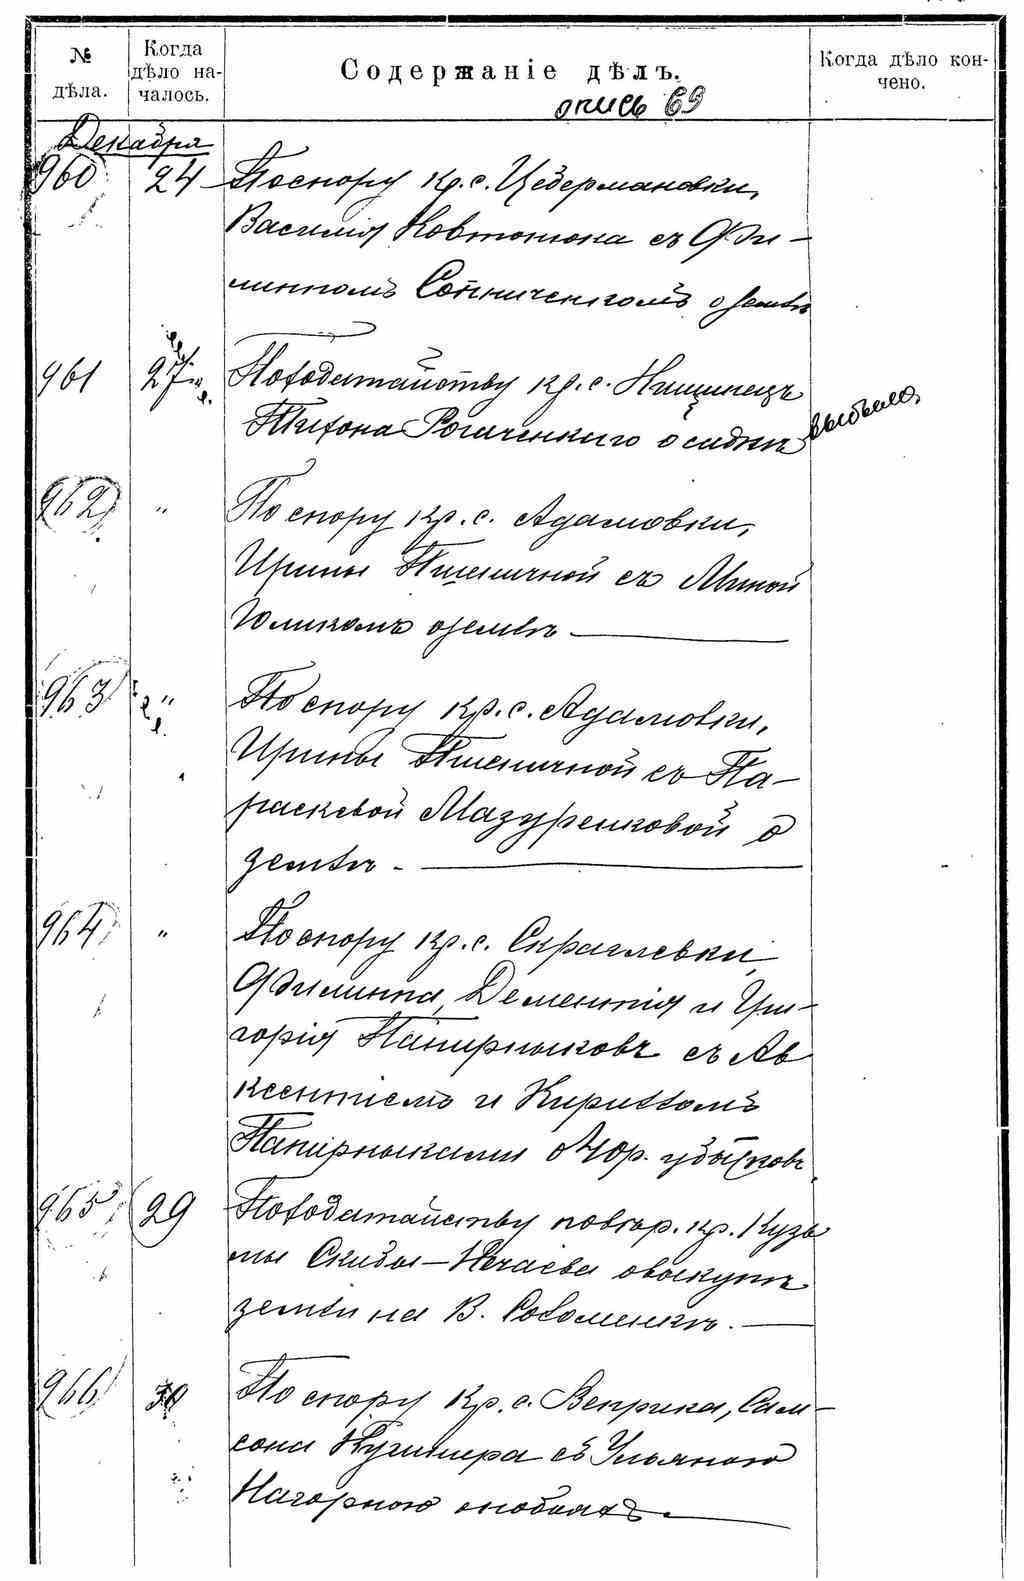 № дѣла.
Когда дѣло началось.
Содержаніе дѣлъ.
Когда дѣло кончено.
опись 69
Декабря
960 24 По спору кр. с. Цедермановки,
Василія Ковтонюка съ Фи-
липпомъ о землѣ
961 27 По ходатайству кр. с. Нишинецъ
Тихона выбыло
962 " По спору кр. с. Адамовки,
Ирины Пшеничной съ Миной
Юликомъ о землѣ
963 " По спору кр. с. Адамовки,
Ирины Пшеничной съ Па-
раскевой Мазуренковой о
землѣ -
964 " По спору кр. с. Скраглевки
Филиппа, Дементія и Гри-
горія Папирныковъ съ Ав
ксентіемъ и Кирилломъ
Папирныками о 40 р. убытковъ
965 29 По ходатайству повѣр. кр. Кузь
мы Скибы-Нечаева о выкупѣ
земли на В.
966 30 По спору кр. с. Веприка, Сам-
сона съ Ульяною
Нагорною о побояхъ.